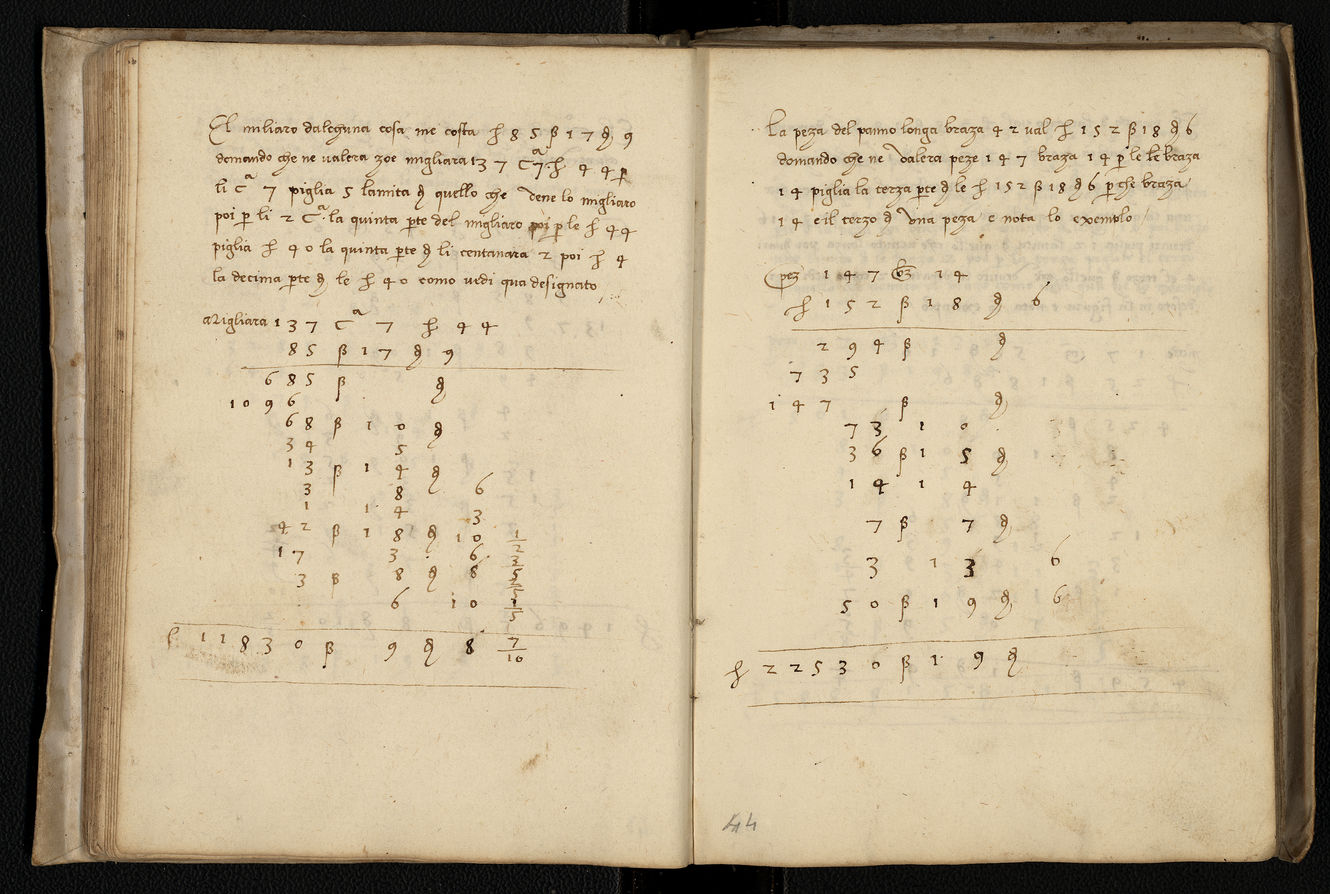 El miliaro dalchuna cosa me costa ₶ 8 5 ß 1 7 ₰ 9
domando che ne valera zoe migliara 1 3 7 Cᵃ 7 ₶ 4 4 p̱
li Cᵃ 7 piglia 5 lamita ₰ quello che vene lo migliaro
poi p̱ li 2 Cᵃ la quinta p̱te del migliaro poi p̱ le ₶ 4 4
piglia ₶ 4 0 la quinta p̱te ₰ li centanara 2 poi ₶ 4
la decima p̱te ₰ le ₶ 4 0 como vedi qua designato
Migliara 1 3 7 Cᵃ 7 ₶ 4 4
8 5 ß 1 7 ₰ 9
6 8 5 ß ₰
1 0 9 6
6 8 ß 1 0 ₰
3 4 5
1 3 ß 1 4 ₰
3 8 6
1 1 4 3
4 2 ß 1 8 ₰ 1 0 1/2
1 7 3 6
3 ß 8 ₰ 8
6 1 0
1 1 8 3 0 ß 9 ₰ 8 7/10
La peza del panno longa braza 4 2 val ₶ 1 5 2 ß 1 8 ₰ 6
domando che ne valera peze 1 4 7 braza 1 4 p̱ le braza
1 4 piglia la terza p̱te ₰ le ₶ 1 5 2 ß 1 8 ₰ 6 p̱che braza
1 4 e il terzo ₰ una peza e nota lo exemplo
pez 1 4 7 bz 1 4
₶ 1 5 2 ß 1 8 ₰ 6
2 9 4 ß ₰
7 3 5
1 4 7 ß ₰
7 3 1 0
3 6 ß 1 5 ₰
1 4 1 4
7 ß 7 ₰
3 1 3 6
5 0 ß 1 9 ₰ 6
₶ 2 2 5 3 0 ß 1 9 ₰
44